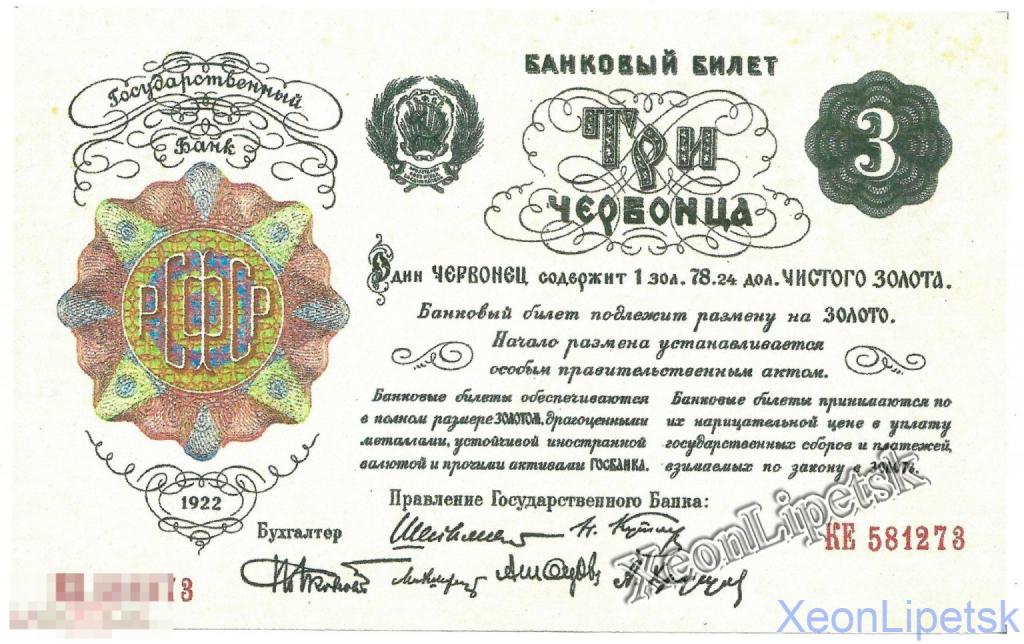 Государственный
Банк
БАНКОВЫЙ БИЛЕТ
ТРИ
ЧЕРВОНЦА
3
Один ЧЕРВОНЕЦ содержит 1 зол. 78.24 дол. ЧИСТОГО ЗОЛОТА.
Банковый билет подлежит размену на ЗОЛОТО.
Начало размена устанавливается
особым правительственным актом.
РСФСР
Банковые билеты обеспечиваются
в полном размере ЗОЛОТОМ, драгоценными
металлами, устойчивой иностранной
валютой и прочими активами ГОСБАНКА.
Банковые билеты принимаются по
их нарицательной цене в уплату
государственных сборов и платежей,
взимаемых по закону в золоте.
1922
Правление Государственного Банка:
Бухгалтер
КЕ 581273
73
XeonLipetsk
XeonLipetsk